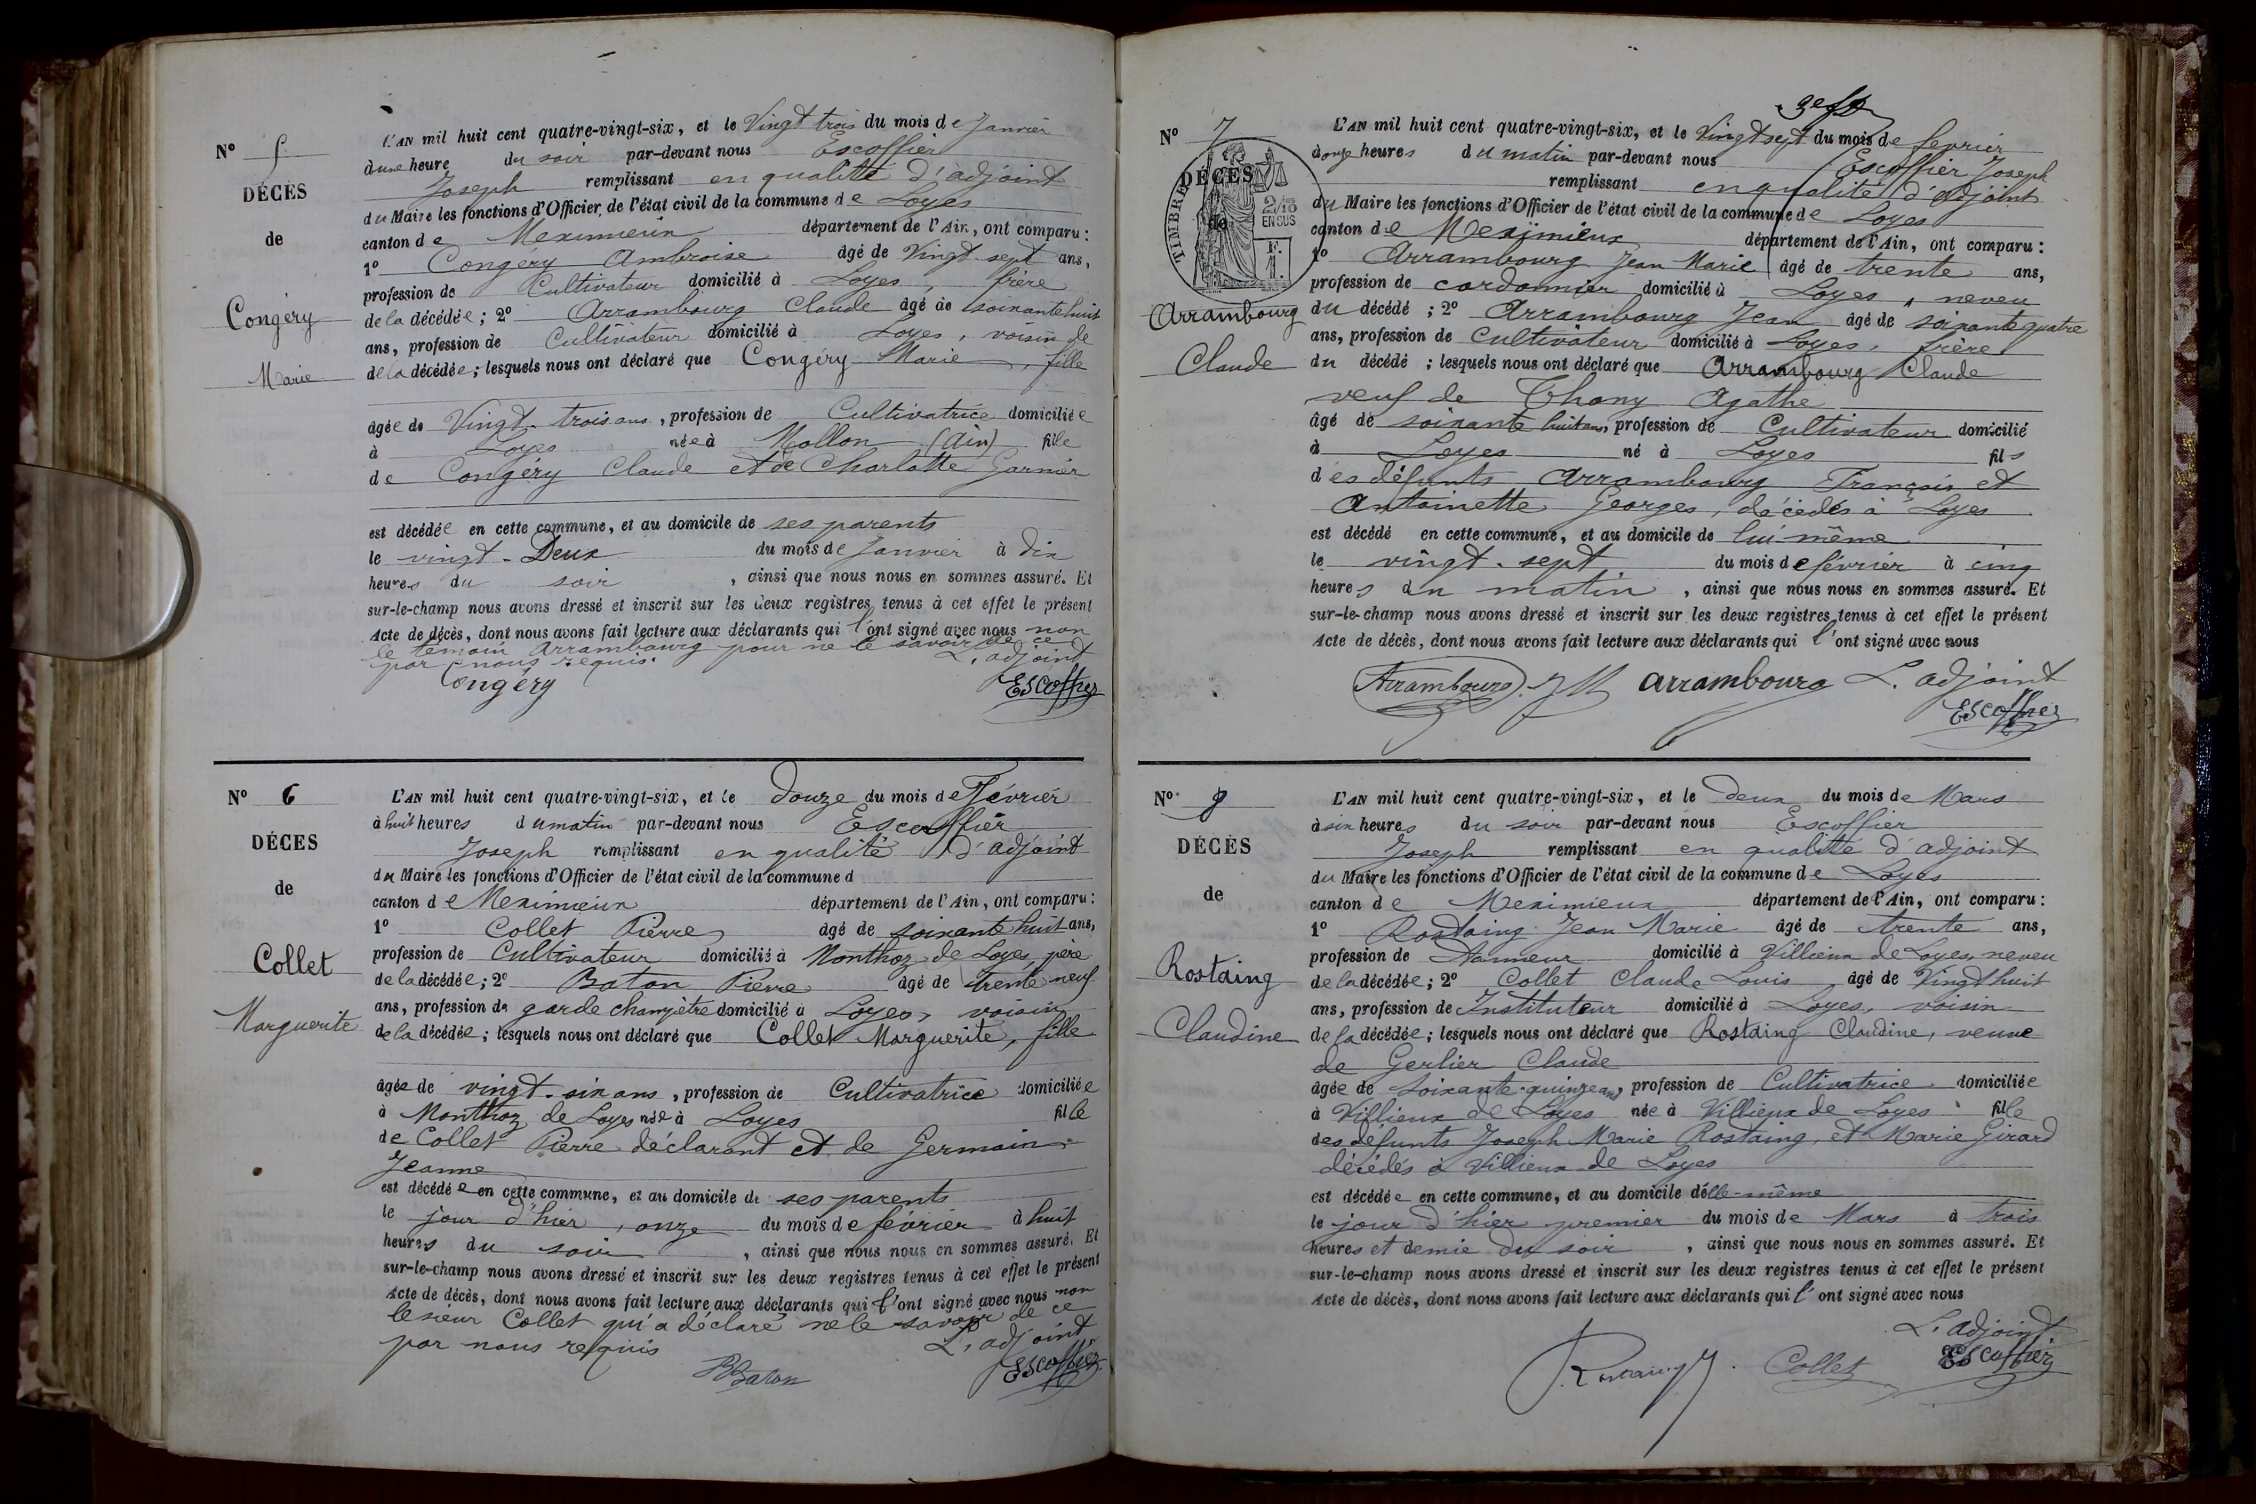 N° 5
DÉCÈS
de
Congéry
Marie
L'AN mil huit cent quatre-vingt-six, et le Vingt trois du mois de Janvier
à une heure du soir par-devant nous Escoffier
Joseph remplissant en qualité d'adjoint
du Maire les fonctions d'Officier de l'état civil de la commune de Loyes
canton de Meximieux département de l'Ain, ont comparu :
1° Congery Ambroise âgé de Vingt sept ans,
profession de Cultivateur domicilié à Loyes, frère
de la décédée ; 2° Arrambourg Claude âgé de soixante huit
ans, profession de Cultivateur domicilié à Loyes, voisin de
de la décédée ; lesquels nous ont déclaré que Congéry Marie, fille
âgée de Vingt-trois ans, profession de Cultivatrice domiciliée
à Loyes née à Mollon (Ain) fille
de Congéry Claude et de Charlotte Garnier
est décédée en cette commune, et au domicile de ses parents
le vingt-Deux du mois de Janvier à dix
heures du soir, ainsi que nous nous en sommes assuré. Et
sur-le-champ nous avons dressé et inscrit sur les deux registres tenus à cet effet le présent
Acte de décès, dont nous avons fait lecture aux déclarants qui l'ont signé avec nous non
le témoin Arrambourg pour ne le savoir de ce
par nous requis. L'adjoint
Congéry Escoffier
N° 6
DÉCÈS
de
Collet
Marguerite
L'AN mil huit cent quatre-vingt-six, et le douze du mois de Février
à huit heures du matin par-devant nous Escoffier
Joseph remplissant en qualité d'adjoint
du Maire les fonctions d'Officier de l'état civil de la commune d
canton de Meximieux département de l'Ain, ont comparu :
1° Collet Pierre âgé de soixante huit ans,
profession de Cultivateur domicilié à Monthoz de Loyes, père
de la décédée ; 2° Baton Pierre âgé de trente neuf
ans, profession de garde champètre domicilié à Loyes, voisin
de la décédée ; lesquels nous ont déclaré que Collet Marguerite, fille
âgée de vingt-six ans, profession de Cultivatrice domiciliée
à Monthoz de Loyes née à Loyes fille
de Collet Pierre déclarant et de Germain
Jeanne
est décédée en cette commune, et au domicile de ses parents
le jour d'hier, onze du mois de février à huit
heures du soir, ainsi que nous nous en sommes assuré. Et
sur-le-champ nous avons dressé et inscrit sur les deux registres tenus à cet effet le présent
Acte de décès, dont nous avons fait lecture aux déclarants qui l'ont signé avec nous non
le sieur Collet qui a déclaré ne le savoir de ce
par nous requis L'adjoint
Baton Escoffier
N° 7
DÉCÈS
de
TIMBRE
2/10 EN SUS
Arrambourg
Claude
L'AN mil huit cent quatre-vingt-six, et le Vingt sept du mois de fevrier
à onze heures du matin par-devant nous Escoffier Joseph
remplissant en qualité d'adjoint
du Maire les fonctions d'Officier de l'état civil de la commune de Loyes
canton de Meximieux département de l'Ain, ont comparu :
1° Arrambourg Jean Marie âgé de trente ans,
profession de cordonnier domicilié à Loyes, neveu
du décédé ; 2° Arrambourg Jean âgé de soixante quatre
ans, profession de Cultivateur domicilié à Loyes, frère
du décédé ; lesquels nous ont déclaré que Arrambourg Claude
veuf de Thony Agathe
âgé de soixante huit ans, profession de Cultivateur domicilié
à Loyes né à Loyes fils
des défunts Arrambourg François et
Antoinette Georges, décédés à Loyes
est décédé en cette commune, et au domicile de lui-même
le vingt-sept du mois de février à cinq
heures du matin, ainsi que nous nous en sommes assuré. Et
sur-le-champ nous avons dressé et inscrit sur les deux registres tenus à cet effet le présent
Acte de décès, dont nous avons fait lecture aux déclarants qui l'ont signé avec nous
Arrambourg JM arrambourg L'adjoint
Escoffier
N° 8
DÉCÈS
de
Rostaing
Claudine
L'AN mil huit cent quatre-vingt-six, et le deux du mois de Mars
à six heures du soir par-devant nous Escoffier
Joseph remplissant en qualité d'adjoint
du Maire les fonctions d'Officier de l'état civil de la commune de Loyes
canton de Meximieux département de l'Ain, ont comparu :
1° Rostaing Jean Marie âgé de trente ans,
profession de domicilié à Villieux de Loyes, neveu
de la décédée ; 2° Collet Claude Louis âgé de Vingt huit
ans, profession de Instituteur domicilié à Loyes, voisin
de la décédée ; lesquels nous ont déclaré que Rostaing Claudine, veuve
de Gerlier Claude
âgée de soixante-quinze ans, profession de Cultivatrice domiciliée
à Villieux de Loyes née à Villieux de Loyes fille
des défunts Joseph Marie Rostaing, et Marie Girard
décédés à Villieux de Loyes
est décédée en cette commune, et au domicile d'elle-même
le jour d'hier premier du mois de Mars à trois
heures et demie du soir, ainsi que nous nous en sommes assuré. Et
sur-le-champ nous avons dressé et inscrit sur les deux registres tenus à cet effet le présent
Acte de décès, dont nous avons fait lecture aux déclarants qui l'ont signé avec nous
L'adjoint
Collet Escoffier